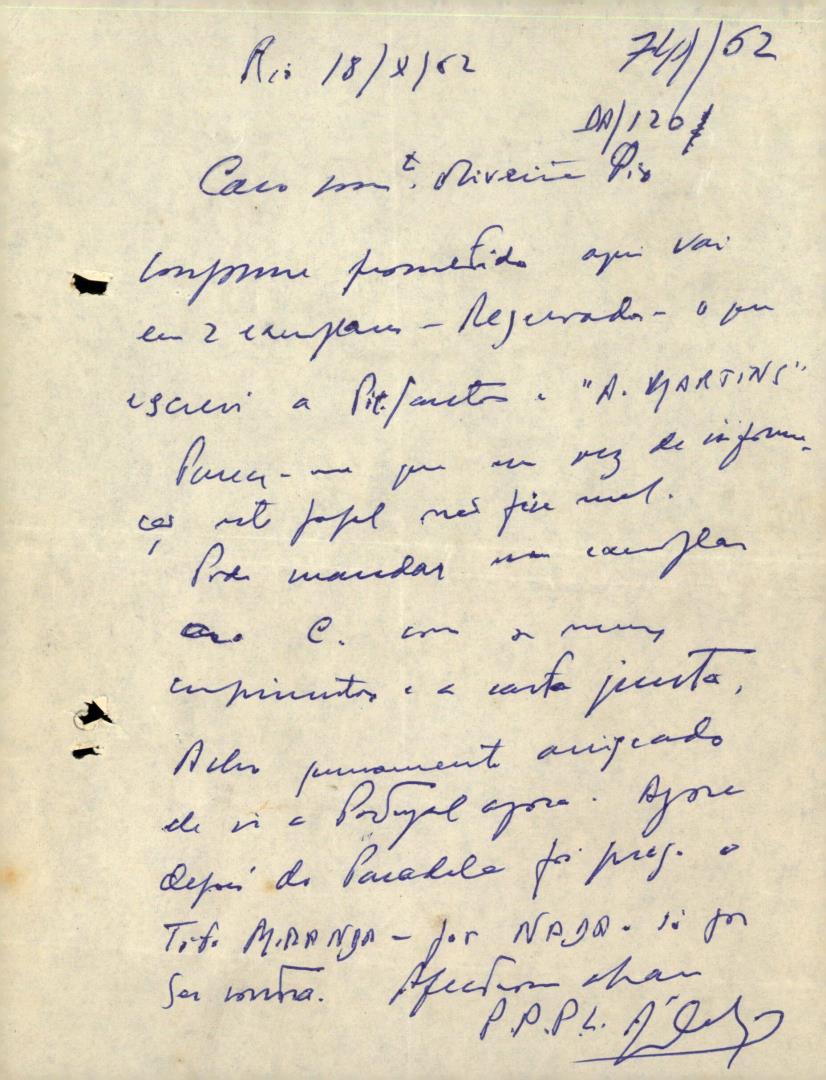 Rio 18/X/62
741/62
DA/120
Caro com^t. Oliveira Pio
Conforme prometido aqui vai
em 2 exemplares - Reservado - o que
escrevi a Pit. Santos e "A. MARTINS"
Parece-me que em vez de informa-
ção este papel não fica mal.
Pode mandar um exemplar
ao C. com os meus
cumprimentos e a carta junta.
Acho sumamente arriscado
ele ir a Portugal agora. Agora
depois do Paradela foi preso o
MIRANDA - por NADA. Só por
ser contra.
P.P.P.L.